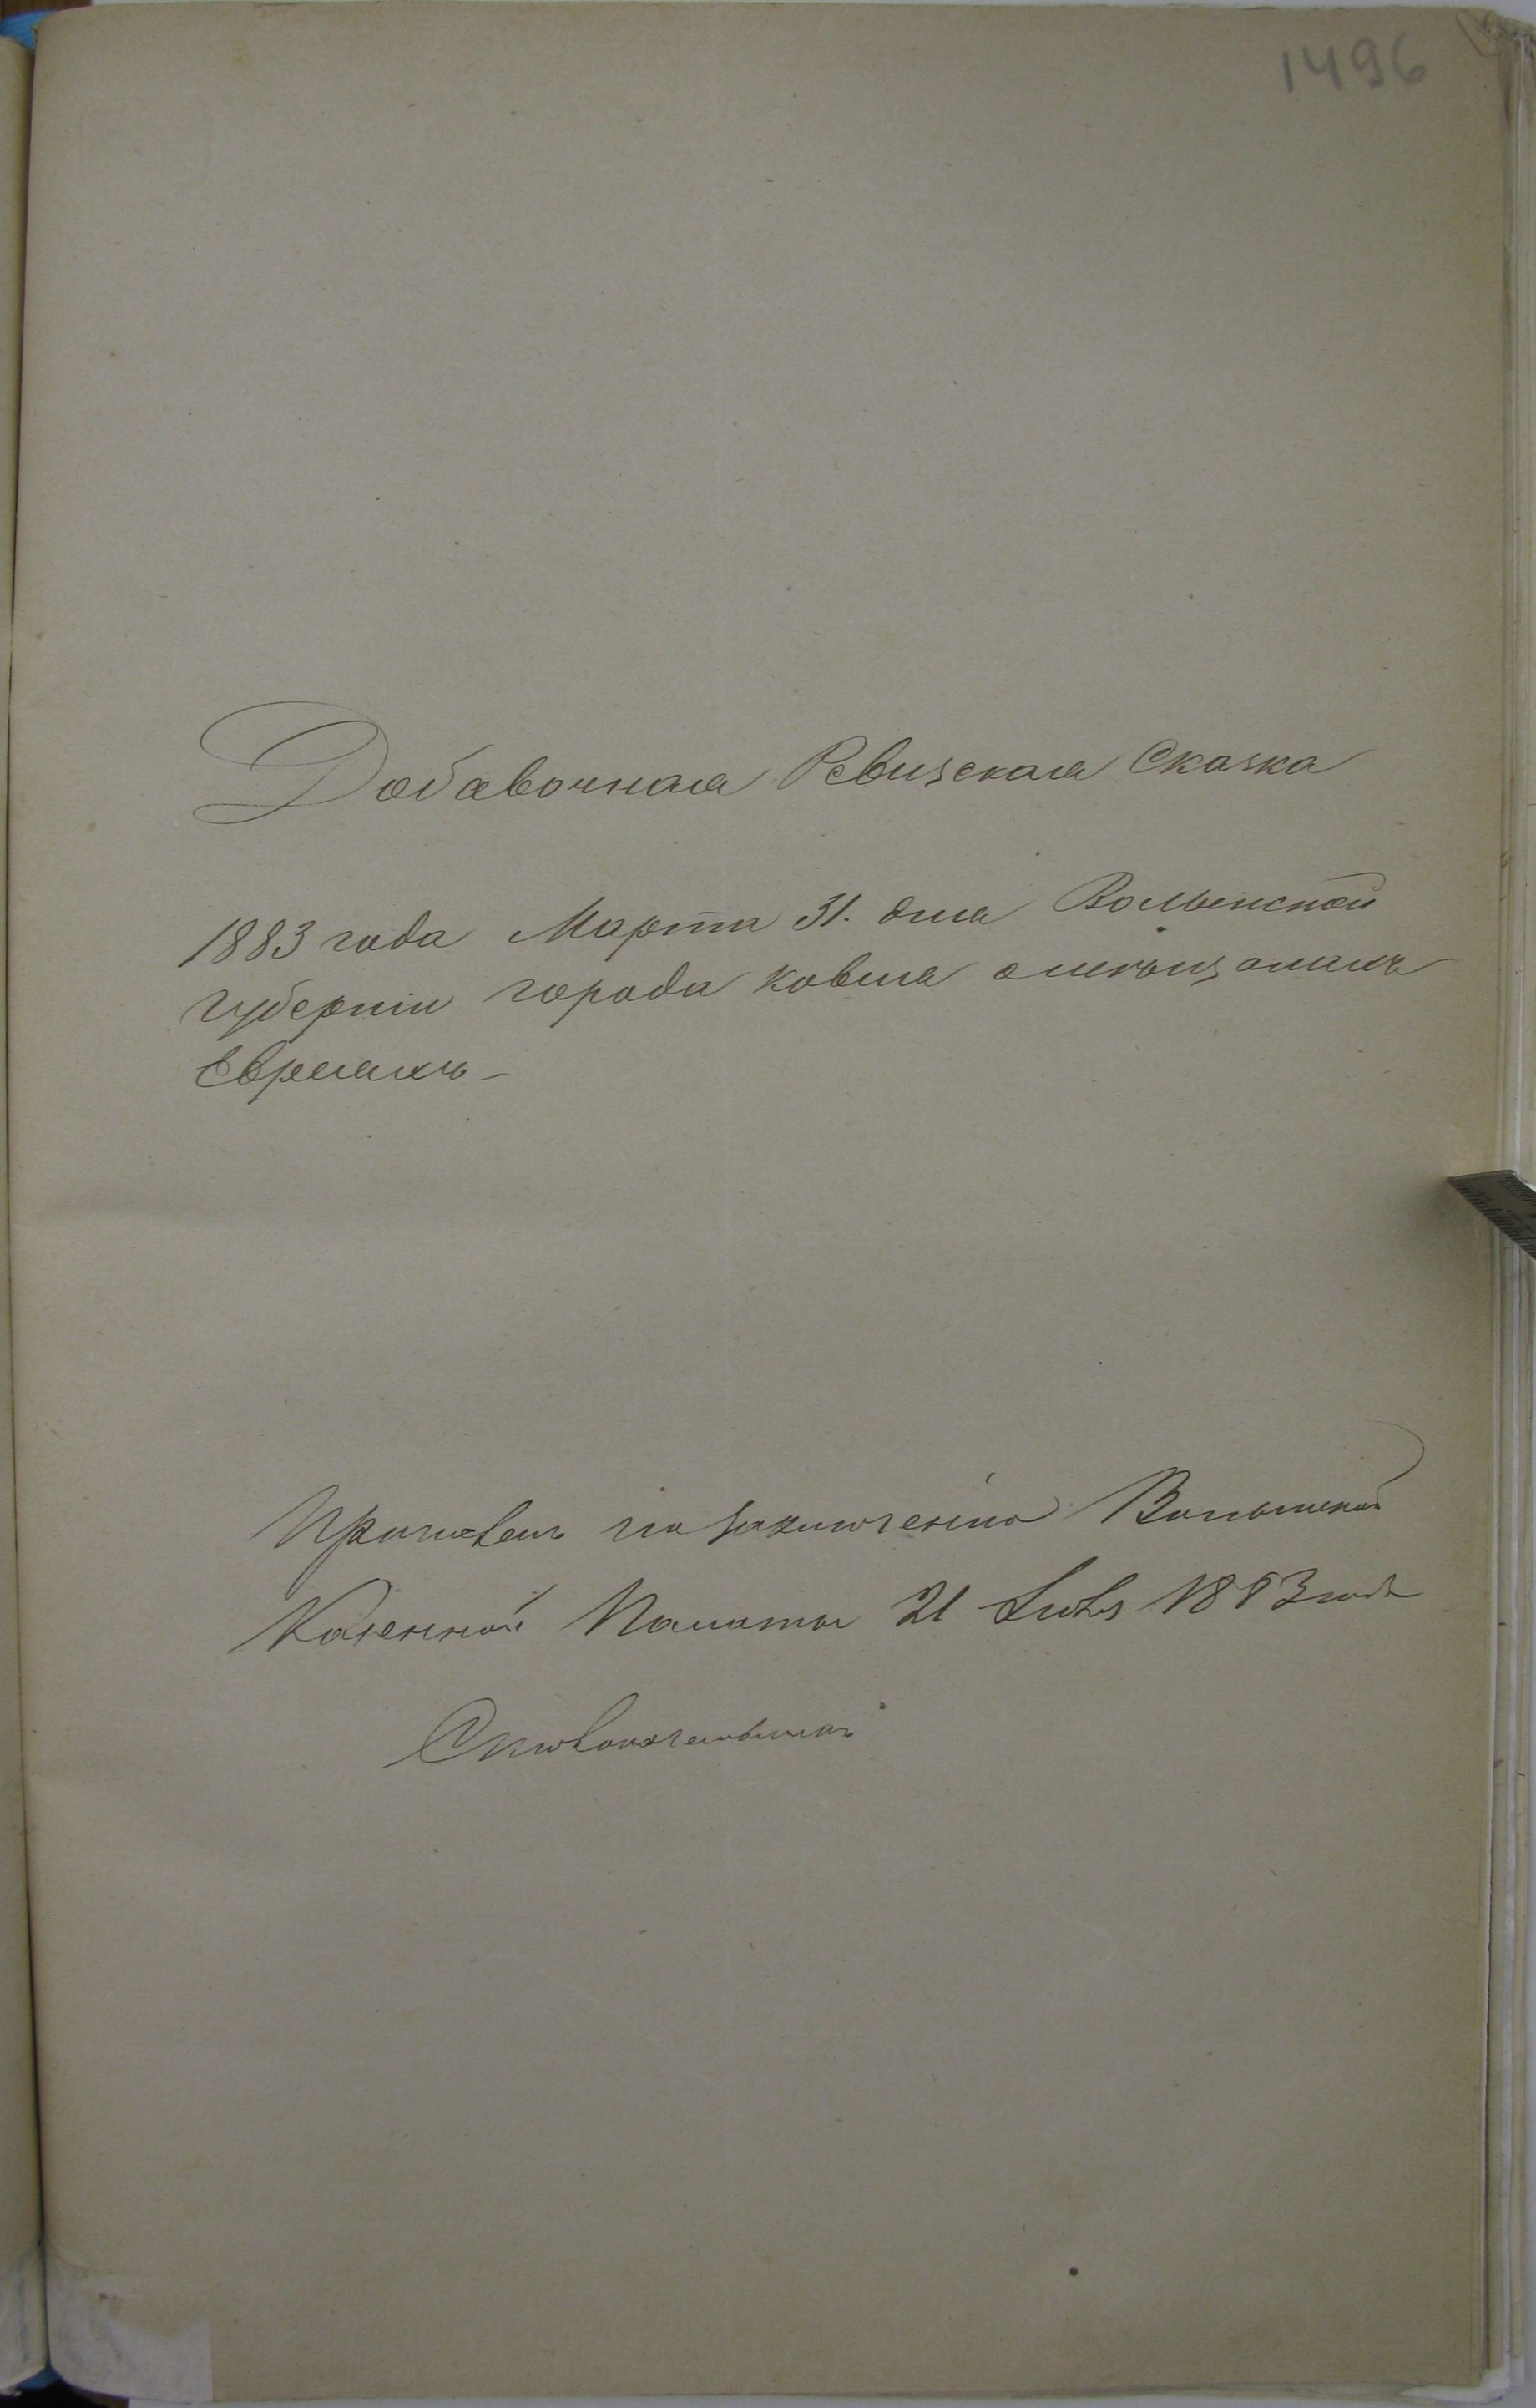 1496
Добавочная Ревизская Сказка
1883 года Марта 31. дня Волынской
губерніи города Ковеля о мѣщанахъ
Евреяхъ
по заключенію Волынской
Казенной Палаты 21 1883 года